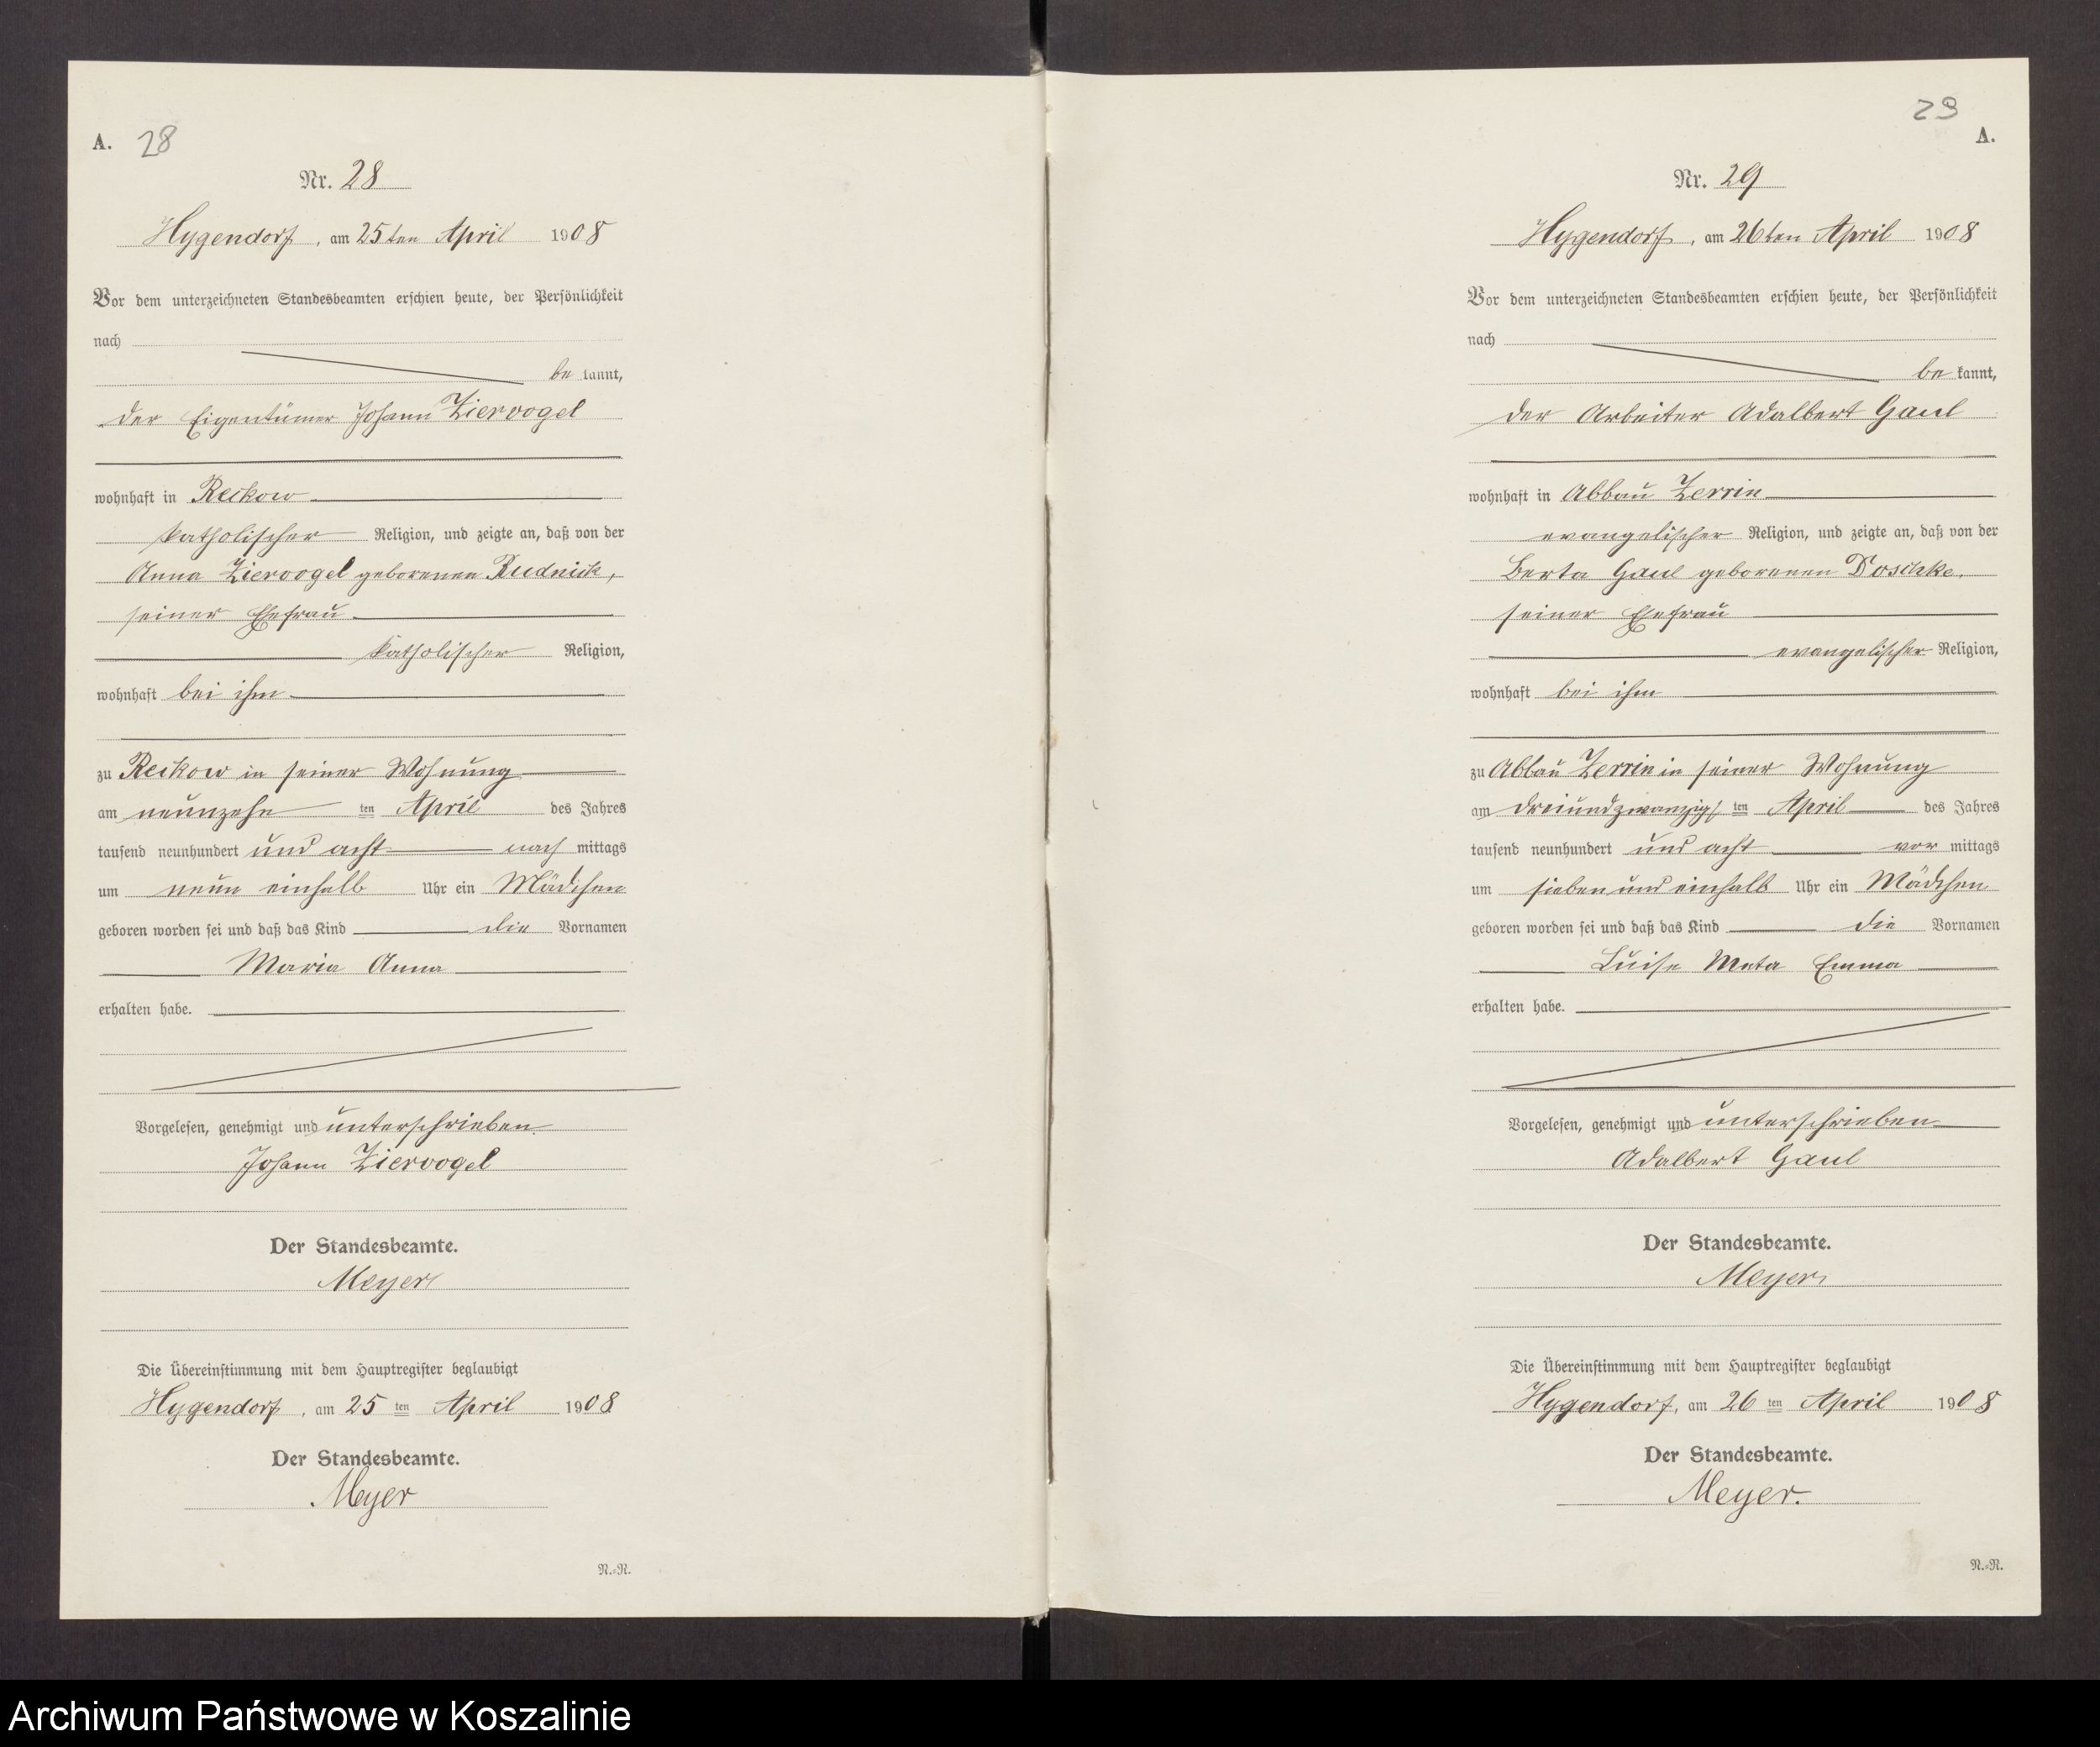 A. 28
Nr. 28
Hygendorf, am 25ten April 1908
Vor dem unterzeichneten Standesbeamten erschien heute, der Persönlichkeit
nach
be kannt,
der Eigentümer Johann Ziervogel
wohnhaft in Reckow
katholischer Religion, und zeigte an, daß von der
Anna Ziervogel geborenen Rudnick,
seiner Ehefrau
katholischer Religion,
wohnhaft bei ihm
zu Reckow in seiner Wohnung
am neunzehn ten April des Jahres
tausend neunhundert und acht nach mittags
um neun einhalb Uhr ein Mädchen
geboren worden sei und daß das Kind die Vornamen
Maria Anna
erhalten habe.
Vorgelesen, genehmigt und unterschrieben.
Johann Ziervogel
Der Standesbeamte.
Meyer
Die Übereinstimmung mit dem Hauptregister beglaubigt
Hygendorf, am 25 ten April 1908
Der Standesbeamte.
Meyer
N.=N.
29
A.
Nr. 29
Hygendorf, am 26ten April 1908
Vor dem unterzeichneten Standesbeamten erschien heute, der Persönlichkeit
nach
be kannt,
der Arbeiter Adalbert Gaul
wohnhaft in Abbau Zerrin
evangelischer Religion, und zeigte an, daß von der
Berta Gaul geborenen Doschke,
seiner Ehefrau
evangelischer Religion,
wohnhaft bei ihm
zu Abbau Zerrin in seiner Wohnung
am dreiundzwanzigs ten April des Jahres
tausend neunhundert und acht vor mittags
um sieben und einhalb Uhr ein Mädchen
geboren worden sei und daß das Kind die Vornamen
Luise Meta Emma
erhalten habe.
Vorgelesen, genehmigt und unterschrieben
Adalbert Gaul
Der Standesbeamte.
Meyer
Die Übereinstimmung mit dem Hauptregister beglaubigt
Hygendorf, am 26 ten April 1908
Der Standesbeamte.
Meyer.
N.=N.
Archiwum Państwowe w Koszalinie